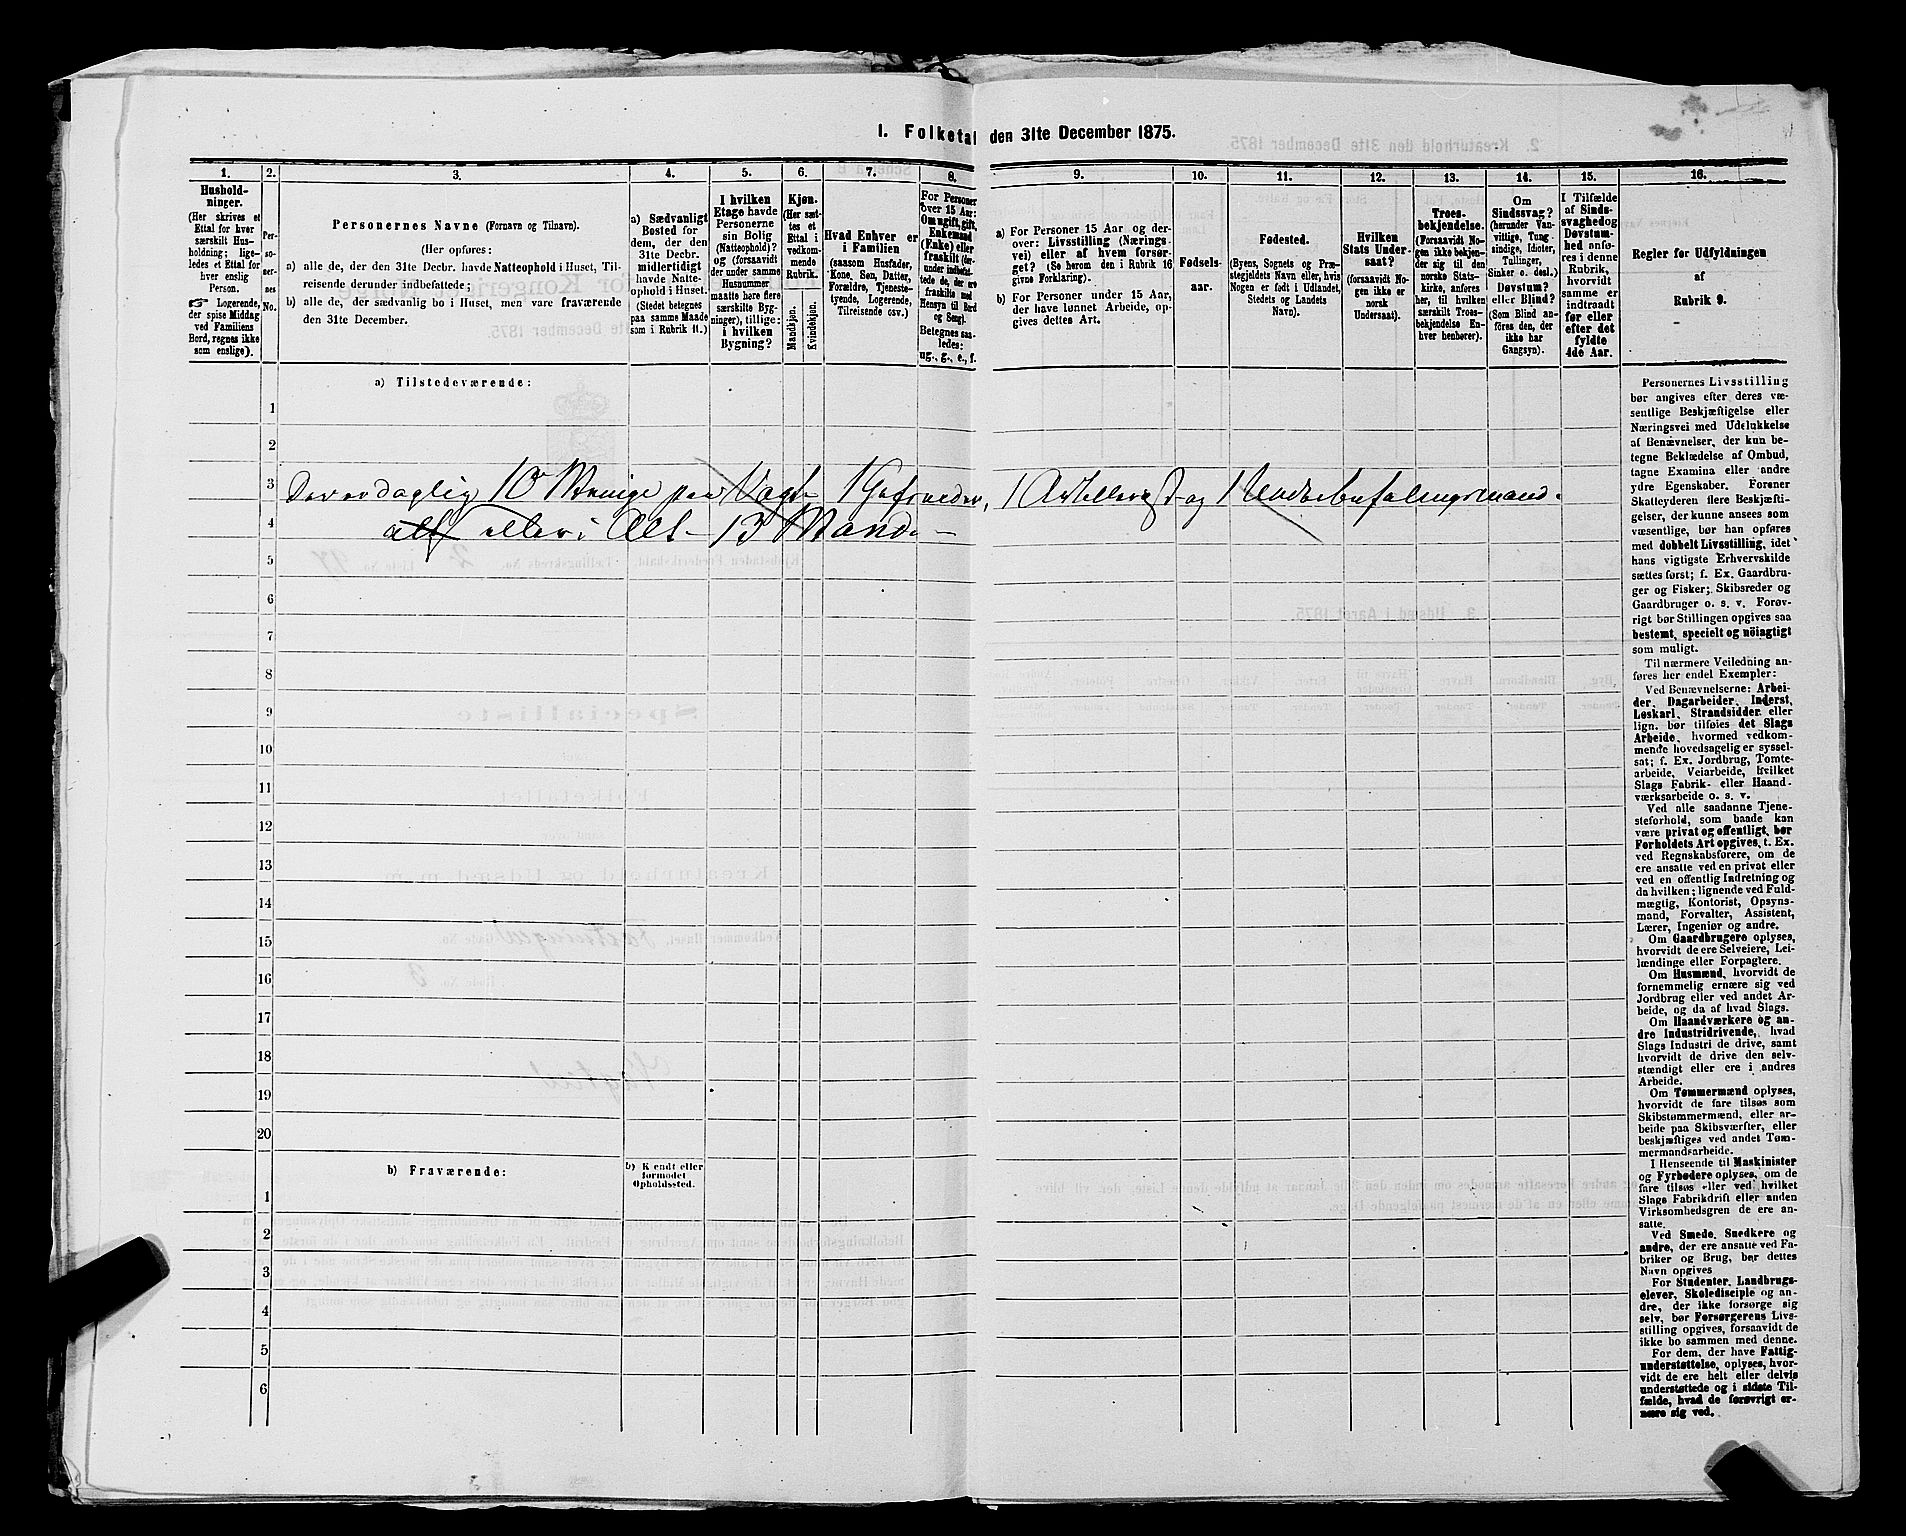 1. Folketal den 31te December 1875.
1.
Hushold-
ninger.
(Her skrives et
Ettal for hver
særskilt Hus-
holdning; lige-
ledes et Ettal for
hver enslig
Person.
☞ Logerende,
der spise Middag
ved Familiens
Bord, regnes ikke
som enslige).
2.
Per-
so-
ner-
nes
No.
3.
Personernes Navne (Fornavn og Tilnavn).
(Her opføres:
a) alle de, der den 31te Decbr. havde Natteophold i Huset, Til-
reisende derunder indbefattede;
b) alle de, der sædvanlig bo i Huset, men vare fraværende
den 31te December.
4.
a) Sædvanligt
Bosted for
dem, der den
31te Decbr.
midlertidigt
havde Natte-
ophold i Huset.
(Stedet betegnes
paa samme Maade
som i Rubrik 11.)
5.
I hvilken
Etage havde
Personerne
sin Bolig
(Natteophold)?
og (forsaavidt
der under samme
Husnummer
maatte høre flere
særskilte Byg-
ninger), tillige:
i hvilken
Bygning?
6.
Kjøn.
(Her sæt-
tes et
Ettal i
vedkom-
mende
Rubrik.
Mandkjøn.
Kvindekjøn.
7.
Hvad Enhver er
i Familien
(saasom Husfader,
Kone, Søn, Datter,
Forældre, Tjeneste-
tyende, Logerende,
Tilreisende osv.)
8.
For Personer
over 15 Aar:
Om ugift, gift,
Enkemand
(Enke) eller
fraskilt (der-
under indbefat-
tede de, der ere
fraskilte med
Hensyn til Bord
og Seng).
Betegnes saa-
ledes:
ug., g., e., f.
9.
a) For Personer 15 Aar og der-
over: Livsstilling (Nærings-
vei) eller af hvem forsør-
get? (Se herom den i Rubrik 16
givne Forklaring).
b) For Personer under 15 Aar,
der have lønnet Arbeide, op-
gives dettes Art.
10.
Fødsels-
aar.
11.
Fødested.
(Byens, Sognets og Præ-
stegjeldets Navn eller, hvis
Nogen er født i Udlandet,
Stedets og Landets
Navn).
12.
Hvilken
Stats Under-
saat?
(forsaavidt No-
gen ikke er
norsk
Undersaat).
13.
Troes-
bekjendelse.
(Forsaavidt No-
gen ikke bekjen-
der sig til den
norske Stats-
kirke, anføres
her, til hvilken
særskilt Troes-
bekjendelse En-
hver henhører).
14.
Om
Sindssvag?
(herunder Van-
vittige, Tung-
sindige, Idioter,
Tullinger,
Sinker o. desl.)
Døvstum?
eller Blind?
(Som Blind an-
føres den, der
ikke har
Gangsyn).
15.
I Tilfælde
af Sinds-
svaghed og
Døvstum-
hed anfø-
res i denne
Rubrik,
hvorvidt
samme er
indtraadt
før eller
efter det
fyldte
4de Aar.
16.
Regler for Udfyldningen
af
Rubrik 9.
a) Tilstedeværende:
1
2
3 Der er daglig 10 Menige paa Vagt 1 Gefreider, 1 Artillerist og 1 Underbefalingsmand.
4 alt eller i Alt - 13 Mand. -
5
6
7
8
9
10
11
12
13
14
15
16
17
18
19
20
b) Fraværende:
b) Kjendt eller
formodet
Opholdssted.
1
2
3
4
5
6
Personernes Livsstilling
bør angives efter deres væ-
sentlige Beskjæftigelse eller
Næringsvei med Udelukkelse
af Benævnelser, der kun be-
tegne Beklædelse af Ombud,
tagne Examina eller andre
ydre Egenskaber. Forener
Skatteyderen flere Beskjæfti-
gelser, der kunne ansees som
væsentlige, bør han opføres
med dobbelt Livsstilling, idet
hans vigtigste Erhvervskilde
sættes først; f. Ex. Gaardbru-
ger og Fisker; Skibsreder og
Gaardbruger o. s. v. Forøv-
rigt bør Stillingen opgives saa
bestemt, specielt og nöiagtigt
som muligt.
Til nærmere Veiledning an-
føres her endel Exempler:
Ved Benævnelserne: Arbei-
der, Dagarbeider, Inderst,
Løskarl, Strandsidder eller
lign. bør tilføies det Slags
Arbeide, hvormed vedkom-
mende hovedsagelig er syssel-
sat; f. Ex. Jordbrug, Tomte-
arbeide, Veiarbeide, hvilket
Slags Fabrik- eller Haand-
værksarbeide o. s. v.
Ved alle saadanne Tjene-
steforhold, som baade kan
være privat og offentligt, bør
Forholdets Art opgives, t. Ex.
ved Regnskabsførere, om de
ere ansatte ved en privat eller
ved en offentlig Indretning og
da hvilken; lignende ved Fuld-
mægtig, Kontorist, Opsyns-
mand, Forvalter, Assistent,
Lærer, Ingeniør og andre.
Om Gaardbrugere oplyses,
hvorvidt de ere Selveiere, Lei-
lændinge eller Forpagtere.
Om Husmænd, hvorvidt de
fornemmelig ernære sig ved
Jordbrug eller ved andet Ar-
beide, og da af hvad Slags.
Om Haandværkere og an-
dre Industridrivende, hvad
Slags Industri de drive, samt
hvorvidt de drive den selv-
stændigt eller ere i andres
Arbeide.
Om Tømmermænd oplyses,
hvorvidt de fare tilsøs som
Skibstømmermænd, eller ar-
beide paa Skibsværfter, eller
beskjæftiges ved andet Tøm-
mermandsarbeide.
I Henseende til Maskinister
og Fyrbødere oplyses, om de
fare tilsøs eller ved hvilket
Slags Fabrikdrift eller anden
Virksomhedsgren de ere an-
satte.
Ved Smede, Snedkere og
andre, der ere ansatte ved Fa-
briker og Brug, bør dettes
Navn opgives
For Studenter, Landbrugs-
elever, Skoledisciple og an-
dre, der ikke forsørge sig
selv, bør Forsørgerens Livs-
stilling opgives, forsaavidt de
ikke bo sammen med denne.
For dem, der have Fattig-
understøttelse, oplyses, hvor-
vidt de ere helt eller delvis
understøttede og i sidste Til-
fælde, hvad de forøvrigt er-
nære sig ved.